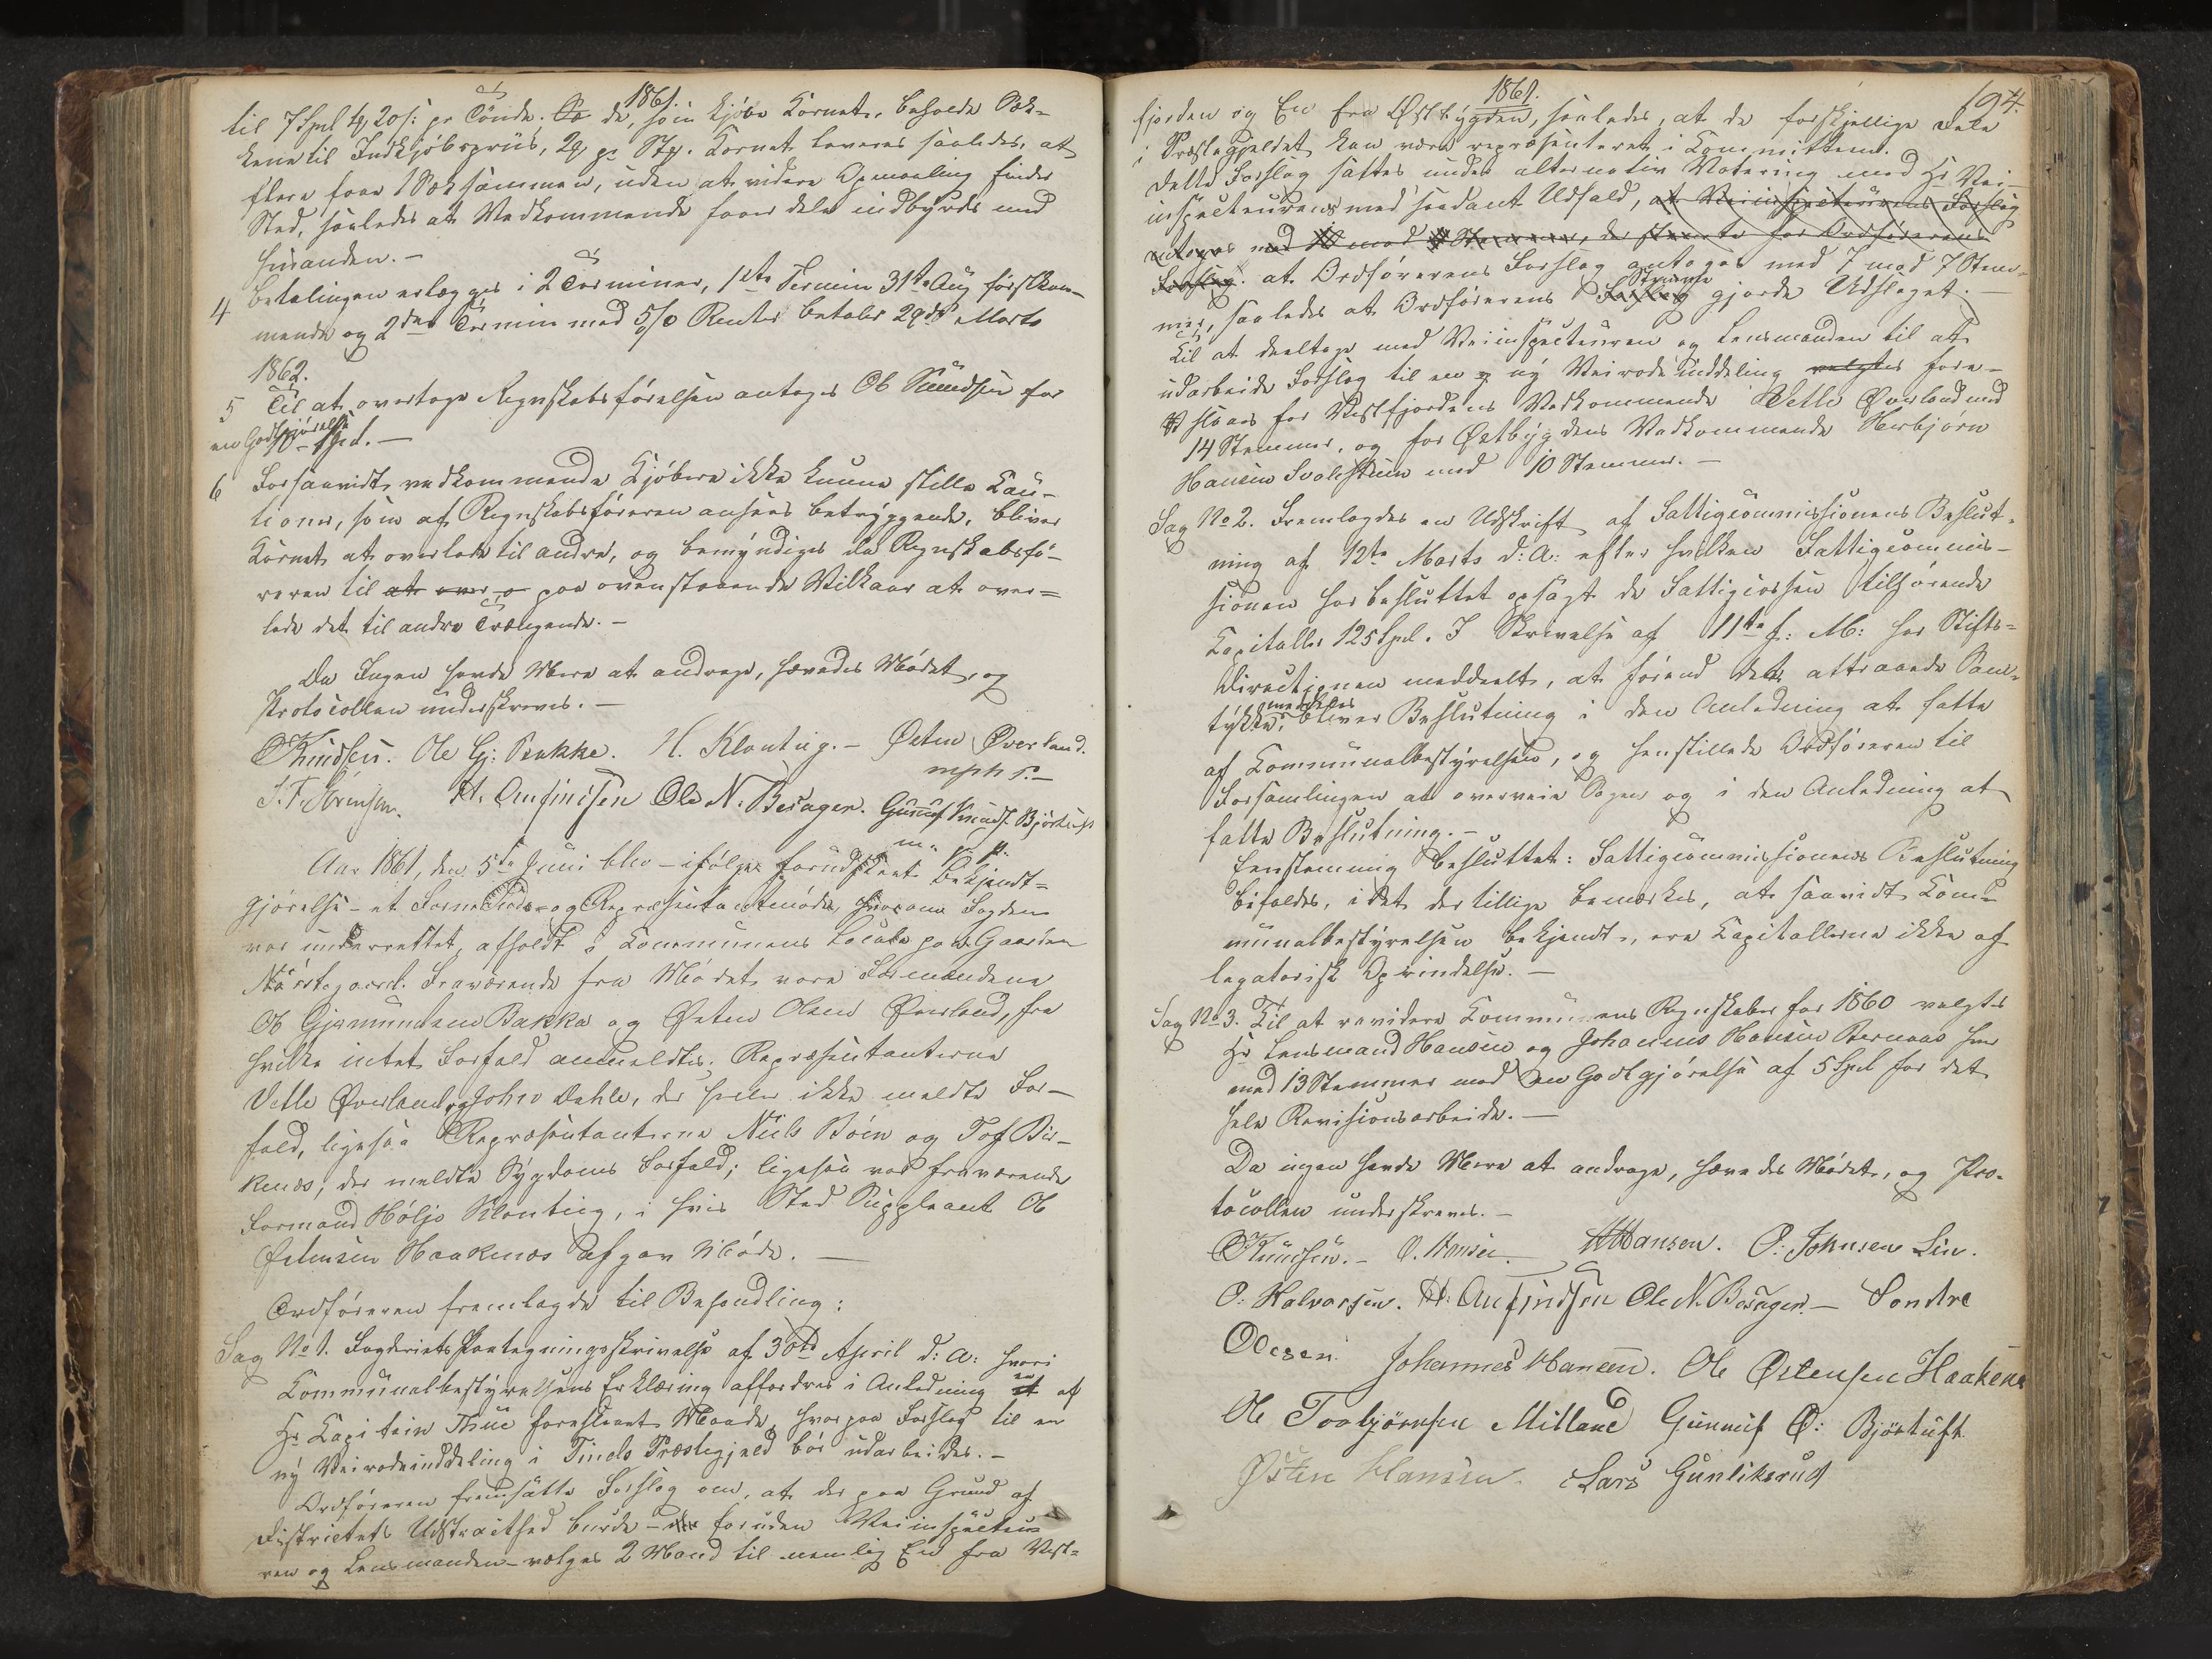 1861.
til 7 Spd 4 ℔ 20 s: pr Tønde. De, som kjøbe Kornet, beholde Sæk-
kene til Indkjøbspriis, 2 ℔ pr Stk. Kornet leveres saaledes, at
flere faar 1 Sæk sammen, uden at videre Opmaaling finder
Sted, saaledes at Vedkommende faar dele indbyrdes med
hinanden. –
4 Betalingen erlægges i 2 Terminer, 1ste Termin 31te Aug førstkom-
mende og 2den Termin med 5 % Renter betales 29de Marts
1862.
5 Til at overtage Regnskabsførelsen antoges Ole Knudsen for
en Godtgjørelse
10 Spd. –
6 Forsaavidt vedkommende Kjøbere ikke kunne stille Cau-
tioner, som af Regnskabsføreren ansees betryggende, bliver
Kornet at overlade til andre, og bemyndiges da Regnskabsfø-
reren til at over paa ovenstaaende Vilkaar at over=
lade det til andre Trængende. –
Da Ingen havde Mere at andrage, hævedes Mødet, og
Protocollen underskreves. –
OKnudsen. Ole Gj: Bakke. H. Klonteig. – Østen Øverland.
mph P. –
S. F. Sørensen. H. Anfinsen Ole N. Bøsager. Gunnuf Knuds. Bjørtuft
m. p. P.
Aar 1861, den 5te Juni blev – ifølge forudskeet Bekjendt=
gjørelse – et Formands- og Repræsentantmøde, hvorom Fogden
var underrettet, afholdt i Kommunens Locale paa Gaarden
Mårstegaard. Fraværende fra Mødet vare Formændene
Ole Gjermundsen Bakka og Østen Olsen Øverland, fra
hvilke intet Forfald anmeldtes; Repræsentanterne
Vetle Øverland og John Dahle, der heller ikke meldte For-
fald, ligesaa Repræsentanterne Niels Bøen og Tof Bir-
kenes, der meldte Sygdoms Forfald; ligesaa var fraværende
Formand Høljo Klonteig, i hvis Sted Suppleant Ole
Østensen Haakenæs afgav Møde. –
Ordføreren fremlagde til Behandling:
Sag No 1. Fogderiets Paategningsskrivelse af 30te April d: A: hvori
Kommunalbestyrelsens Erklæring affordres i Anledning en af
Hr Kapitain Thue foreslaaet Maade, hvorpaa Forslag til en
ny Veirodeinddeling i Tinds Præstegjeld bør udarbeides. –
Ordføreren fremsatte Forslag om, at der paa Grund af
Districtets Udstrakthed burde – foruden Veiinspecteu-
ren og Lensmanden – vælges 2 Mænd til nemlig En fra Vest=
1861.
194.
fjorden og En fra Østbygden, saaledes, at de forskjellige Dele
i Præstegjeldet kan være repræsenteret i Committeen.
Dette Forslag sattes under alternativ Votering med Hr Vei-
inspecteurens med saadant Udfald, at Veiinspecteurens Forslag
antoges med mod Stemmer, der stemte for Ordførerens
Forslag. at Ordførerens Forslag antoges med 7 mod 7 Stem-
Stemme
mer, saaledes at Ordførerens Forslag gjorde Udslaget. –
Til at deeltage med Veiinspecteuren og Lensmanden til at
udarbeide Forslag til en ny Veirodeinddeling valgtes fore-
slaaes for Vestfjordens Vedkommende Vetle Øverland med
14 Stemmer, og for Østbygdens Vedkommende Herbjørn
Hansen med 10 Stemmer. –
Sag No 2. Fremlagdes en Udskrift af Fattigcommissionens Beslut-
ning af 12te Marts d: A: efter hvilken Fattigcommis-
sionen har besluttet opsagt de Fattigcassen tilhørende
Kapitaller 125 Spd. I Skrivelse af 11te f: M: har Stifts=
directionen meddeelt, at førend det attraaede Sam-
meddeles
tykke bliver Beslutning i den Anledning at fatte
af Kommunalbestyrelsen, og henstillede Ordføreren til
Forsamlingen at overveie Sagen og i den Anledning at
fatte Beslutning. –
Eenstemmig besluttet: Fattigcommissionens Beslutning
bifaldes, idet der tillige bemærkes, at saavidt Kom-
munalbestyrelsen bekjendt, ere Kapitallerne ikke af
legatorisk Oprindelse. –
Sag No 3. Til at revidere Kommunens Regnskaber for 1860 valgtes
Hr Lensmand Hansen og Johannes Hansen Bernaas hver
med 13 Stemmer mod en Godtgjørelse af 5 Spd for det
hele Revisionsarbeide. –
Da ingen havde Mere at andrage, hævedes Mødet, og Pro-
tocollen underskreves. –
OKnudsen. – O. Hansen. HHansen. O. Johnsen Lien.
O. Halvorsen. H. Anfindsen Ole N. Bøsager. – Sondre
Olesen. Johannes Hansen. Ole Østensen Haakenes
Ole Torbjørnsen Milland Gunnuf O: Bjørtuft
Østen Hansen. Lars Gunliksrud